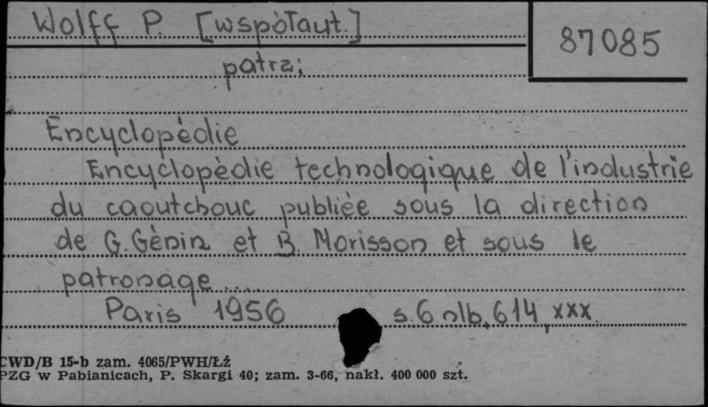 Wolff P. [współaut.]
87085
patrz:
Encyclopédie
Encyclopèdie technologique de l'industrie
du caoutchouc publiée sous la direction
de G. Gènin et B. Morisson et sous le
patronage ....
Paris 1956 s. 6 nlb, 614, xxx.
CWD/B 15-b zam. 4065/PWH/Łź
PZG w Pabianicach, P. Skargi 40; zam. 3-66, nakł. 400 000 szt.